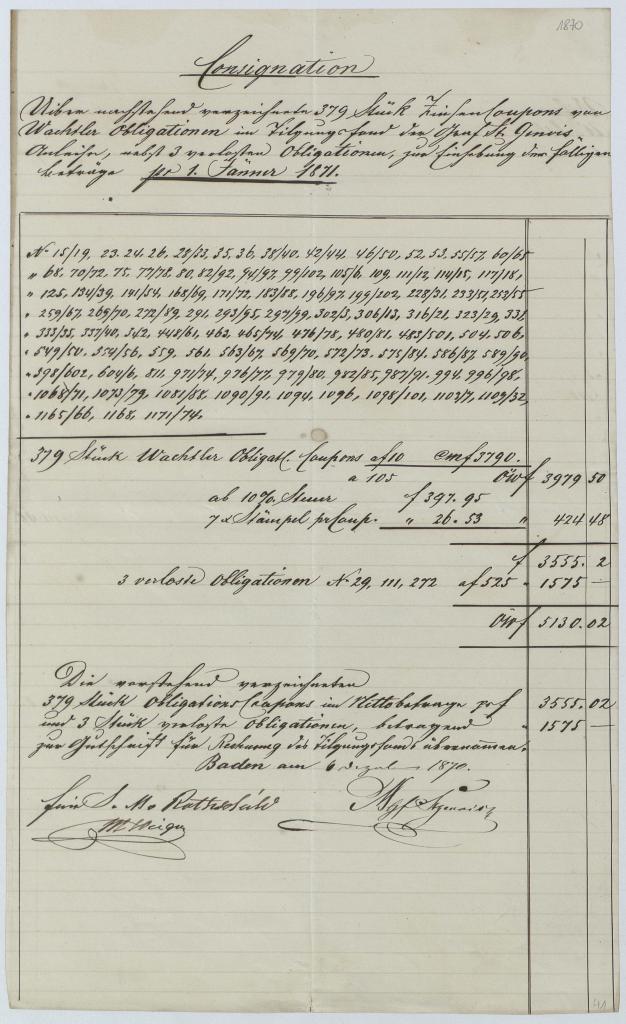 1870
Consignation
Uiber nachstehend verzeichnete 379 Stück Zinsen Coupons von
Wachtler Obligationen im Tilgungsfond der Graf St. Genois
Anleihe, nebst 3 verlosten Obligationen, zur Einhebung der fälligen
Beträge pr 1. Jänner 1871.
No 15/19, 23. 24. 26. 28/33, 35, 36, 38/40, 42/44, 46/50, 52, 53, 55/57, 60/65
" 68, 70/72, 75, 77/78, 80, 82/92, 94/97, 99/102, 105/6, 109, 111/12, 114/15, 117/18,
" 125, 134/39, 141/54, 168/69, 171/72, 183/88, 196/97, 199/202, 228/31, 233/51, 253/55
" 259/67, 269/70, 272/89, 291, 293/95, 297/99, 302/3, 306/13, 316/21, 323/29, 331,
" 333/35, 337/40, 342, 448/61, 463, 465/74, 476/78, 480/81, 483/501, 504, 506,
" 549/50, 554/56, 559, 561, 563/67, 569/70, 572/73, 575/84, 586/87, 589/90,
" 598/602, 604/6, 811, 971/74, 976/77, 979/80, 982/85, 987/91, 994, 996/98,
" 1068/71, 1073/79, 1081/88, 1090/91, 1094, 1096, 1098/101, 1103/7, 1109/32,
" 1165/66, 1168, 1171/74.
379 Stück Wachtler Obligatl. Coupons af 10 Cmf 3790.
a 105 ÖWf 3979 50
ab 10% Steuer f 397.95
7 x Stämpel pr Coup. " 26.53 " 424 48
f 3555. 2
3 verloste Obligationen No 29, 111, 272 af 525 " 1575 —
ÖWf 5130.02
Die vorstehend verzeichneten
379 Stück Obligations Coupons im Nettobetrage pr f 3555.02
und 3 Stück verloste Obligationen, betragend " 1575 —
zur Gutschrift für Rechnung des Tilgungsfonds übernommen.
Baden am 6 1870.
für S. M. v Rothschild
41